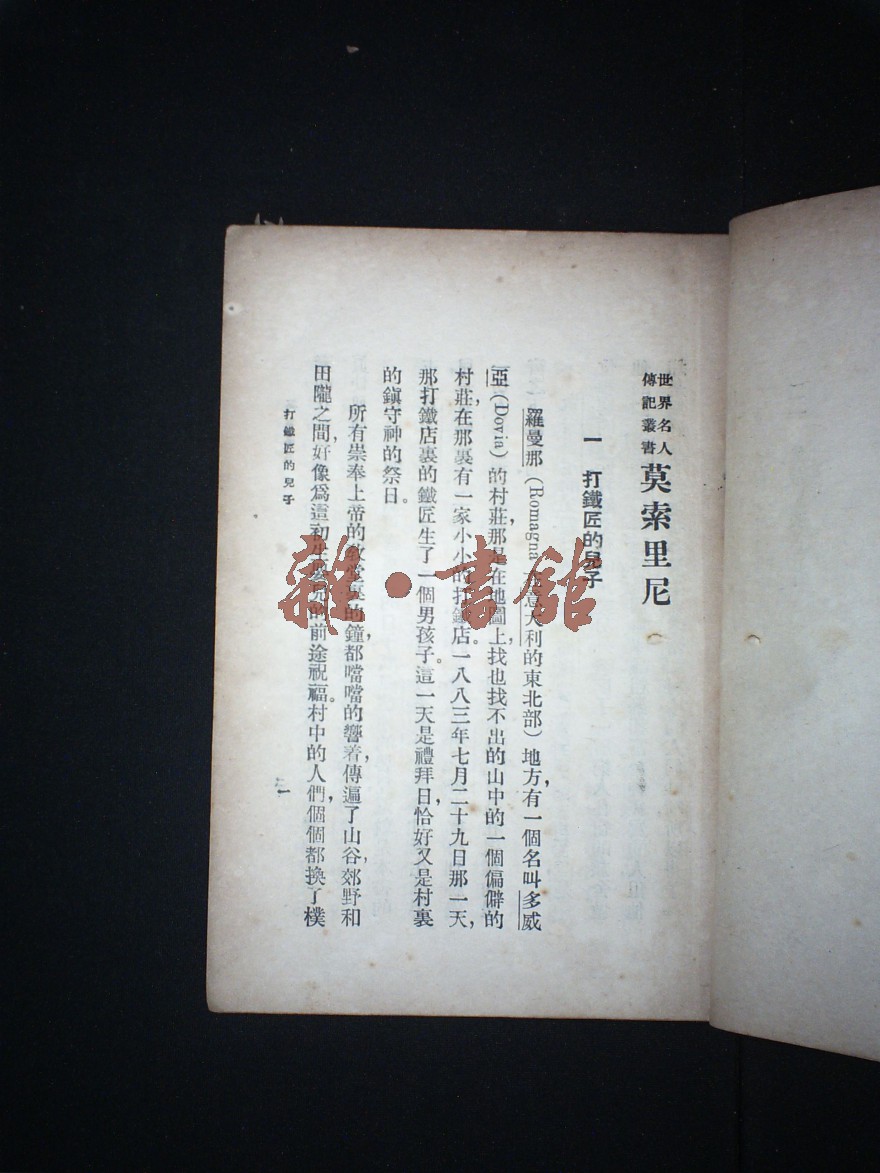 世界名人
傳記叢書
莫索里尼
一 打鐵匠的兒子
羅曼那(Romagna 意大利的東北部)地方,有一個名叫多威
亞(Dovia)的村莊,那是在地圖上找也找不出的山中的一個偏僻的
村莊,在那裏有一家小小的打鐵店。一八八三年七月二十九日那一天,
那打鐵店裏的鐵匠生了一個男孩子。這一天是禮拜日,恰好又是村裏
的鎮守神的祭日。
所有崇奉上帝的教堂裏的鐘,都噹噹的響着,傳遍了山谷,郊野和
田隴之間,好像爲這初生嬰兒的前途祝福。村中的人們,個個都換了樸
打鐵匠的兒子
一
雜·書館